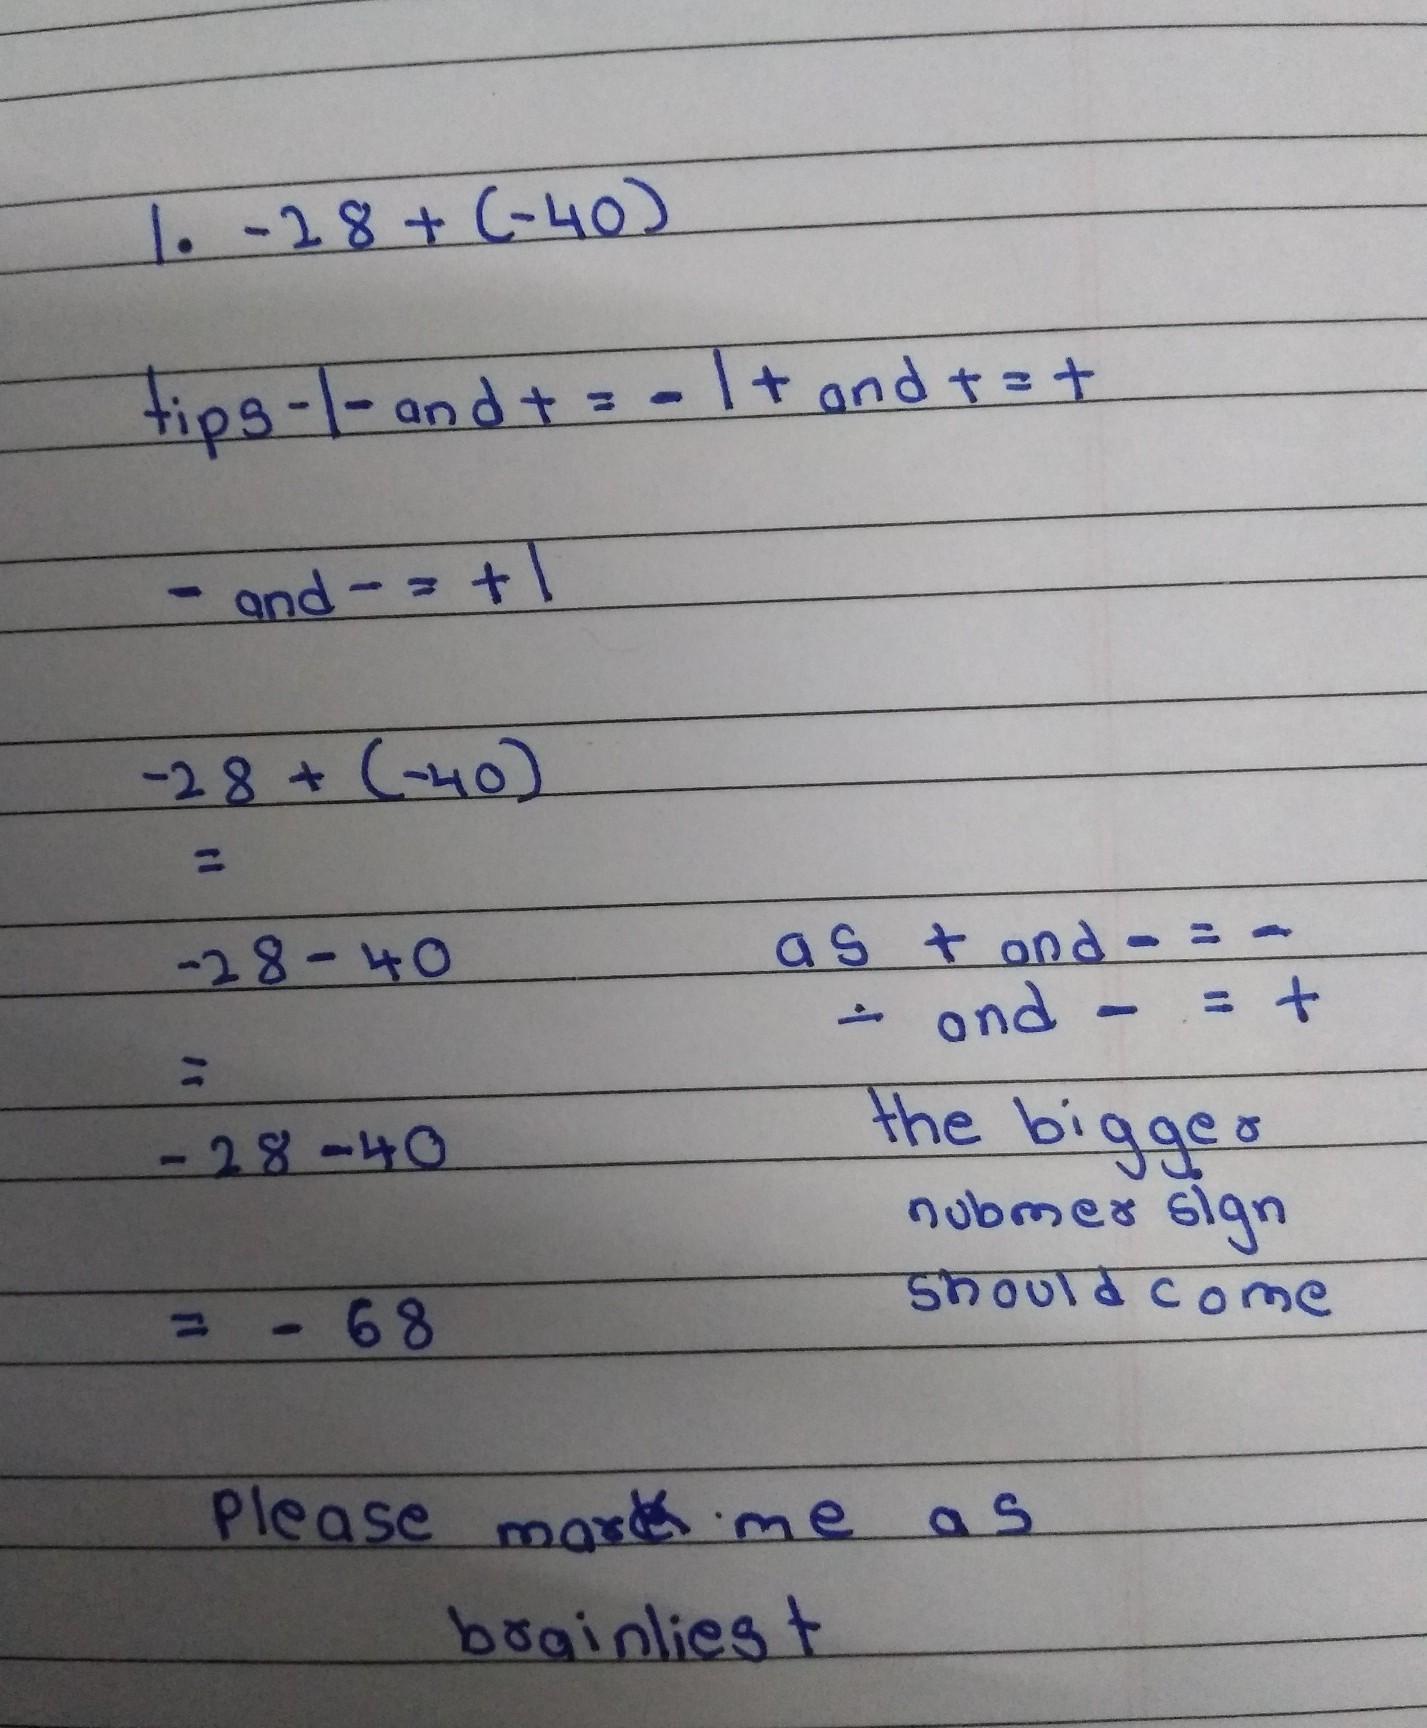 1. -28 + (-40)
tips-|- and + = - | + and + = +
- and - = + |
-28 + (-40)
=
-28 - 40 as + and - = -
- and - = +
=
-28 -40 the bigger
nubmer sign
should come
= - 68
Please mark me as
brainliest